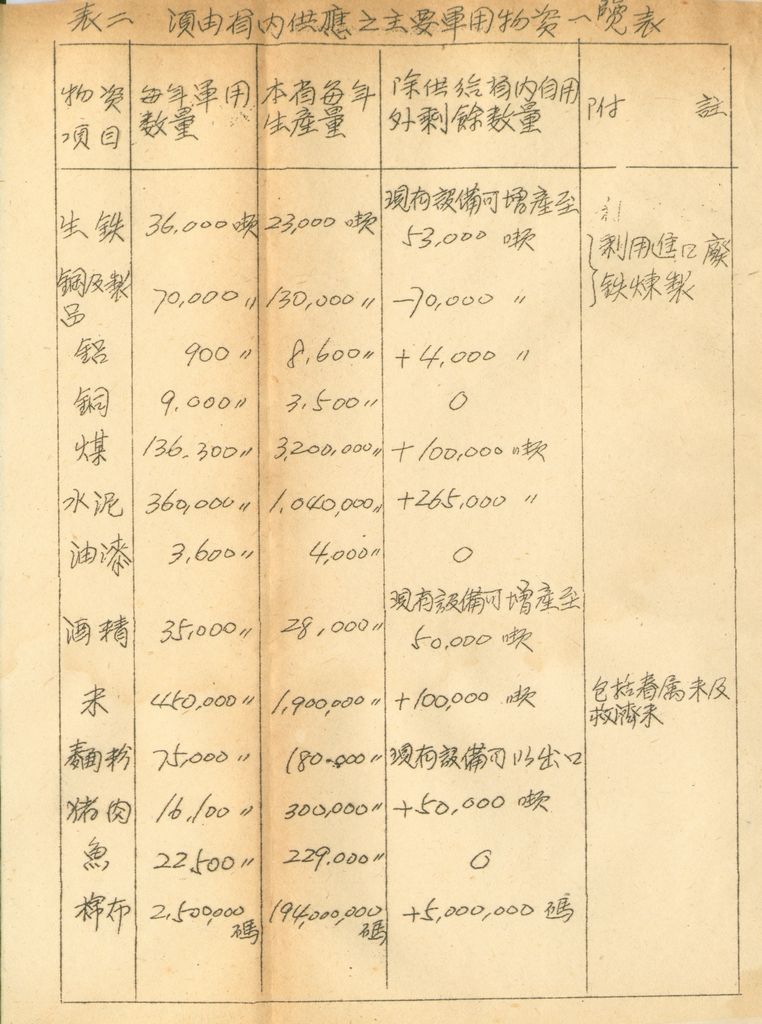 表二 須由省内供應之主要軍用物资一覽表
物资項目 每年軍用数量 本省每年生産量 除供给省内自用外剩餘数量 附註
生铁 36,000噸 23,000噸 現有設備可增産至53,000噸
利用進口廢铁煉製
鋼及製品 70,000〃 130,000〃 −70,000〃
鋁 900〃 8,600〃 +4,000〃
銅 9,000〃 3,500〃 0
煤 136,300〃 3,200,000〃 +100,000噸
水泥 360,000〃 1,040,000〃 +265,000〃
油漆 3,600〃 4,000〃 0
酒精 35,000〃 28,000〃 現有設備可增産至50,000噸
米 450,000〃 1,900,000〃 +100,000噸 包括眷属米及救濟米
麵粉 75,000〃 180,000〃 現有設備可以出口
猪肉 16,100〃 300,000〃 +50,000噸
魚 22,500〃 229,000〃 0
棉布 2,500,000碼 194,000,000碼 +5,000,000碼